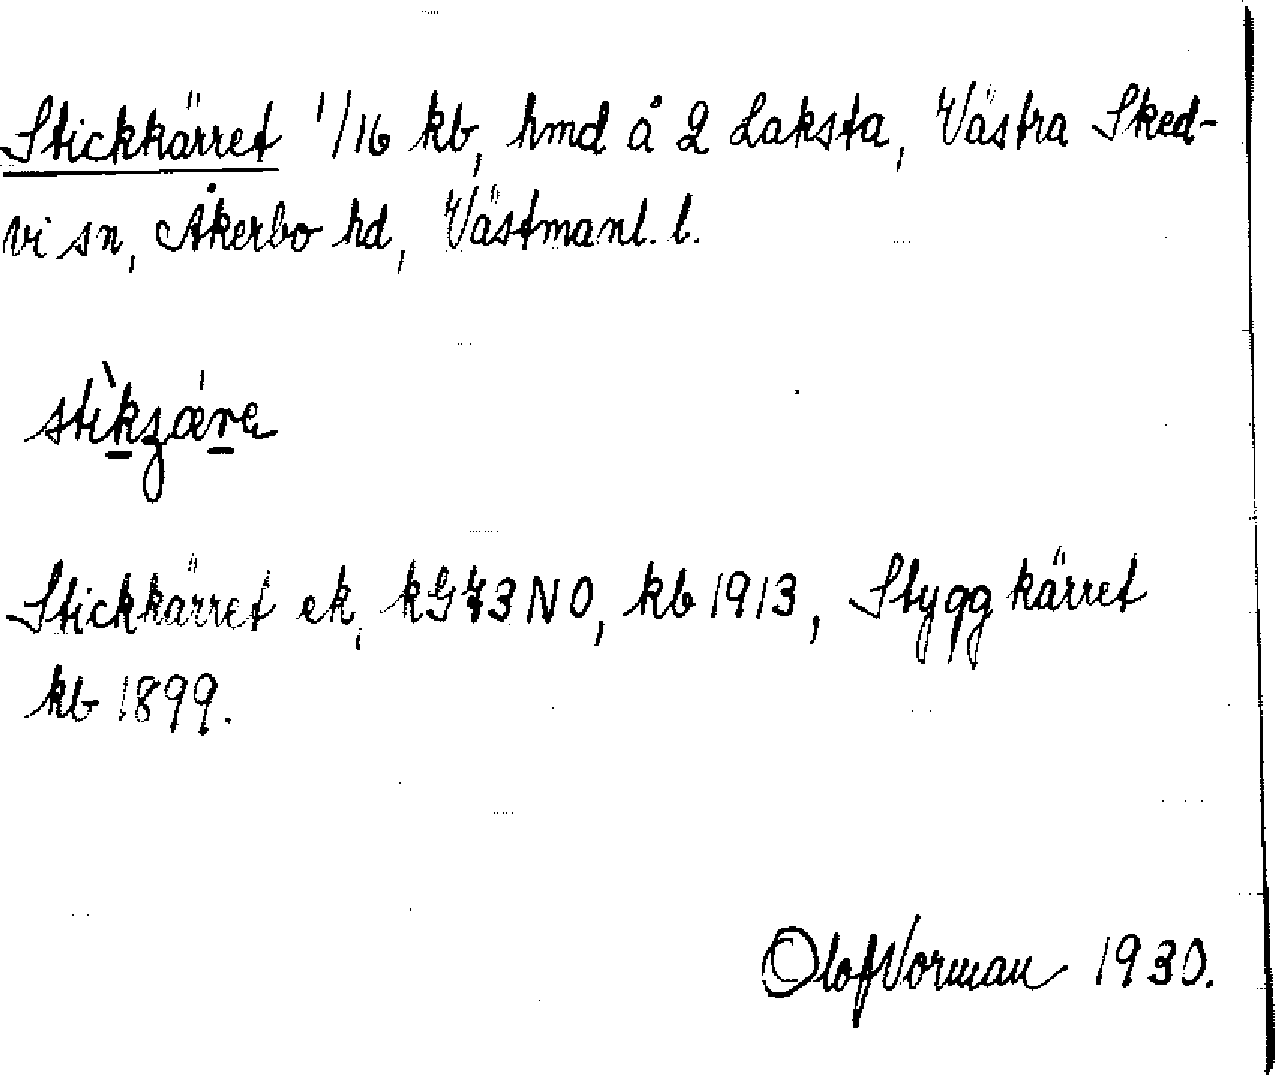 Stickkärret 1/16 kb, hmd å 2 Laksta, Västra Sked-
vi sn, Åkerbo hd, Västmanl. l.
Stickkärret ek, kG73NO, kb 1913, Styggkärret
kb 1899.
Olof Vorman 1930.